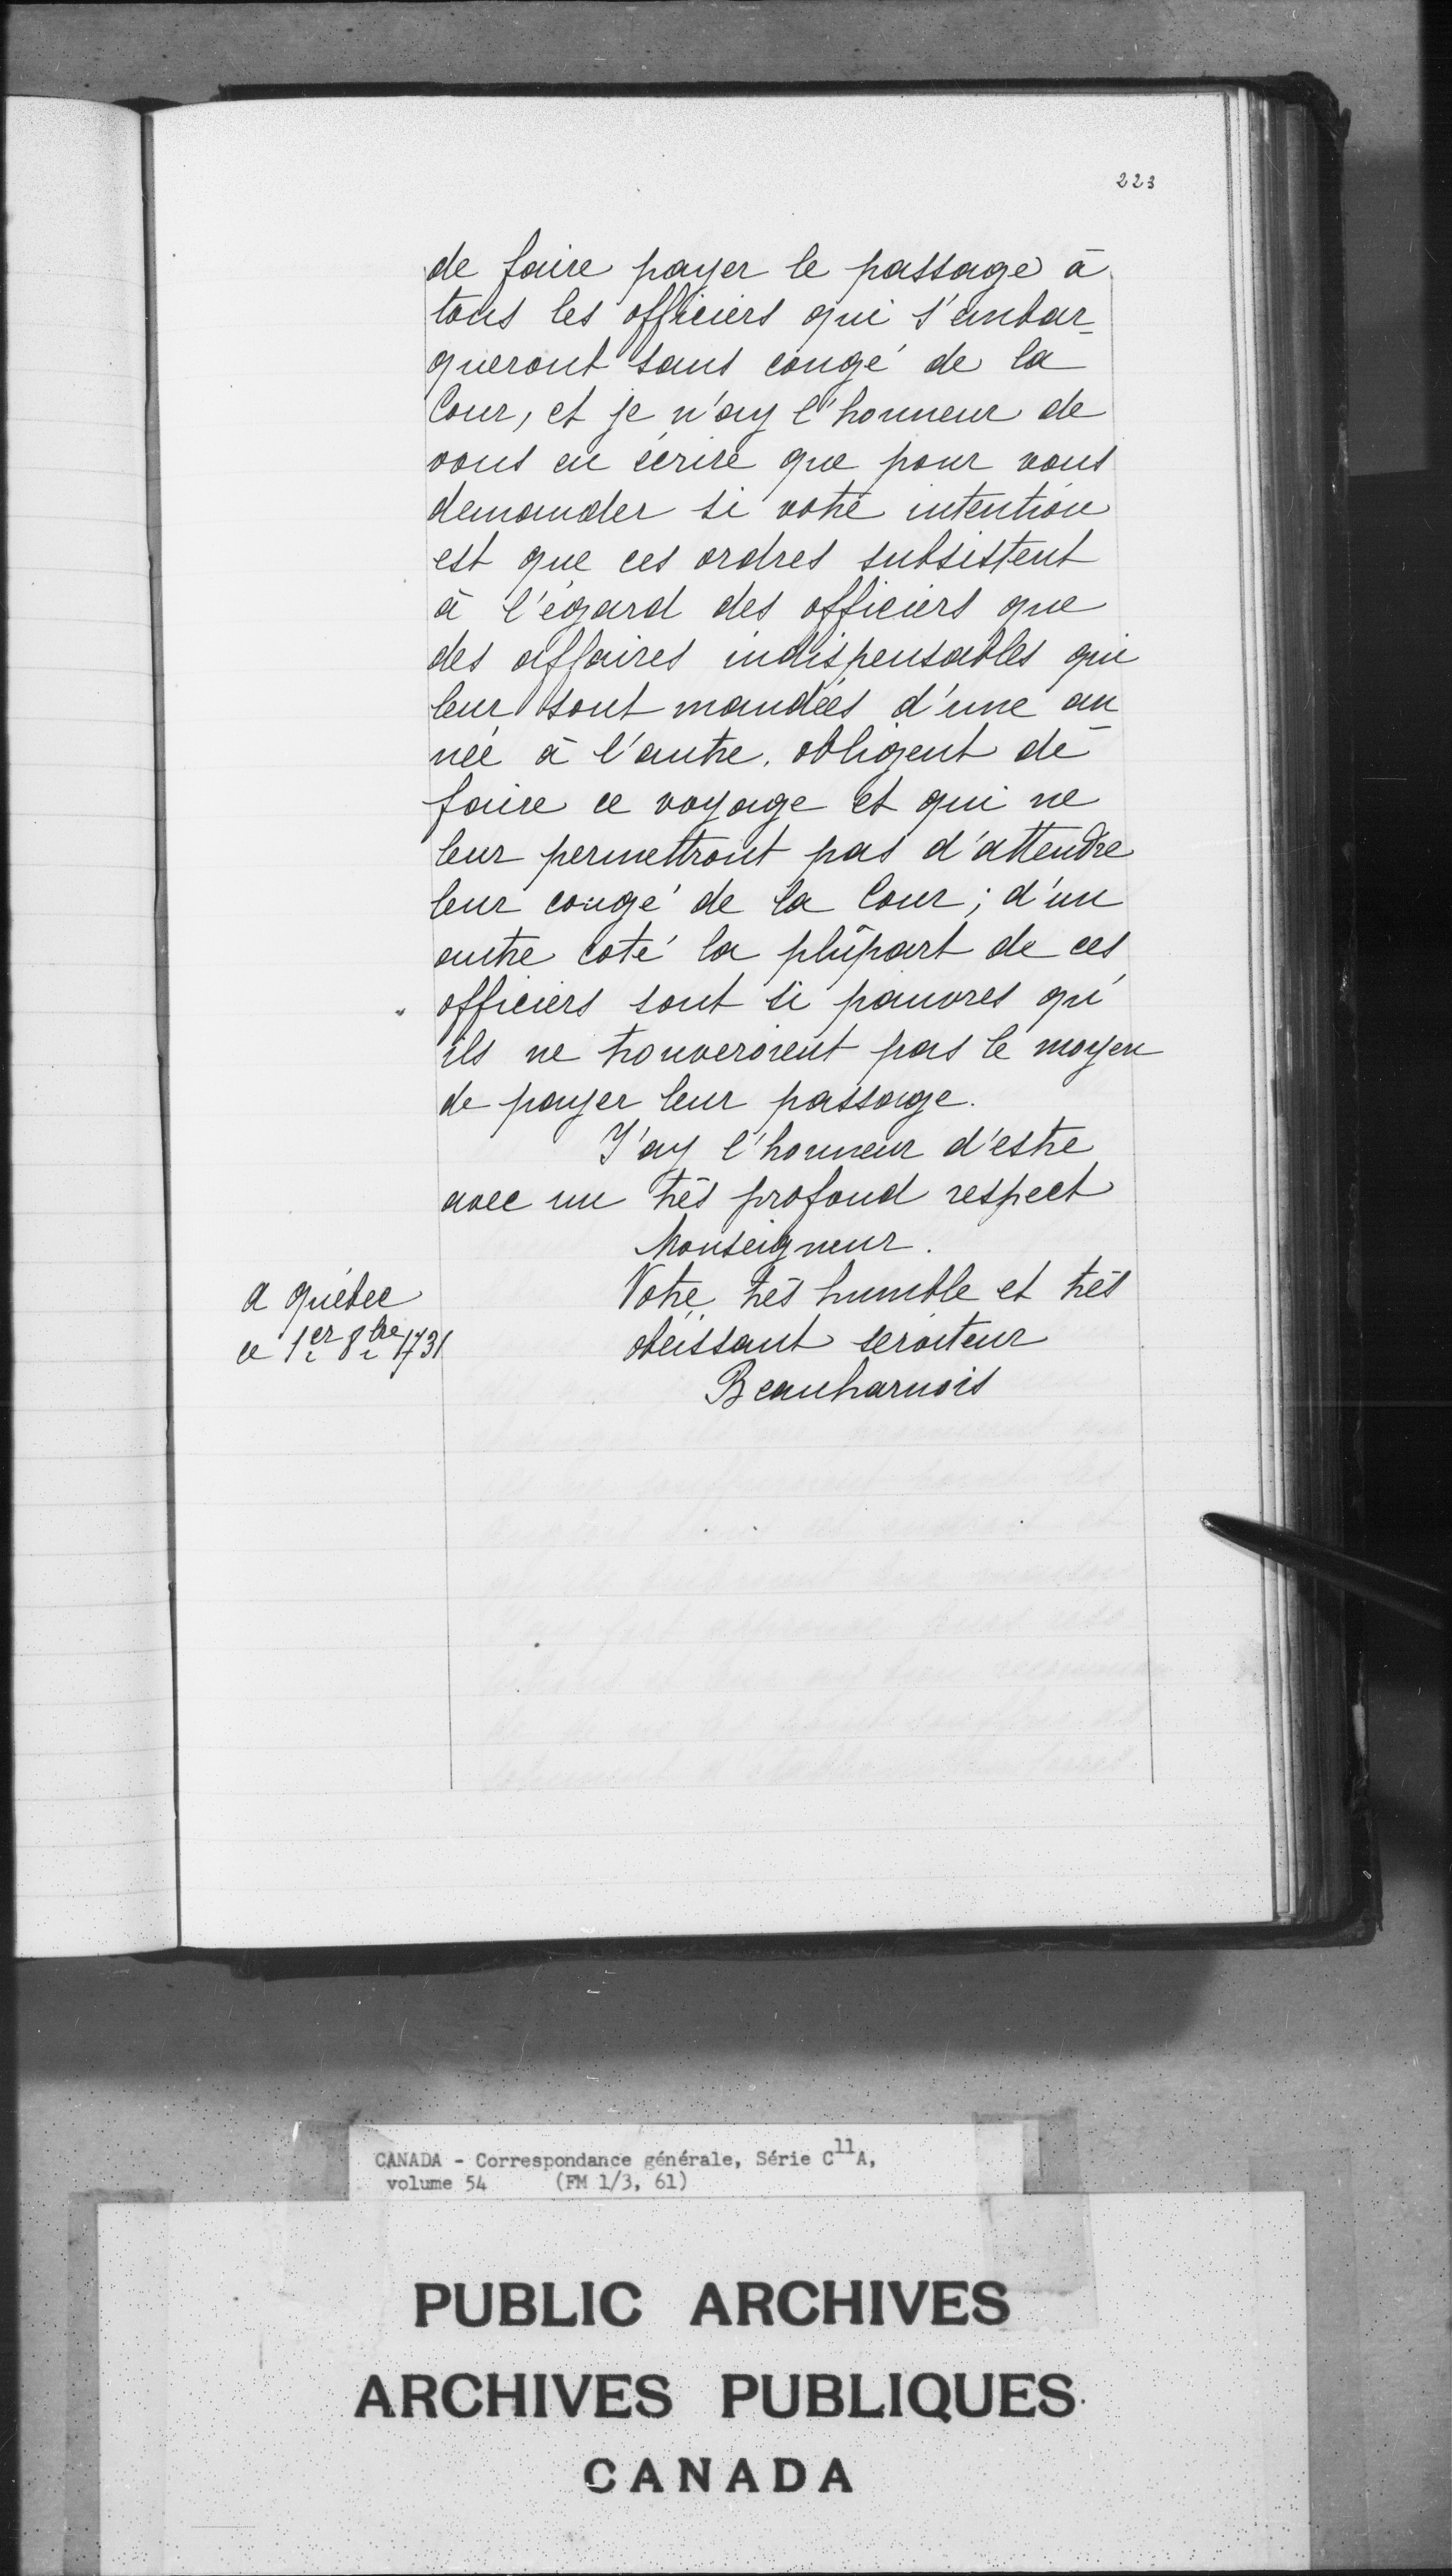 223
de faire payer le passage à
tous les officiers qui s'embar-
queront sans congé de la
Cour, et je n'ay l'honneur de
vous en écrire que pour vous
demander si votre intention
est que ces ordres subsistent
à l'égard des officiers que
des affaires indispensables qui
leur sont mandées d'une an
née à l'autre, obligent de
faire ce voyage et qui ne
leur permettront pas d'attendre
leur congé de la Cour; d'un
autre coté la plûpart de ces
officiers sont si pauvres qu'
ils ne trouveroient pas le moyen
de payer leur passage.
J'ay l'honneur d'estre
avec un très profond respect
Monseigneur.
Votre très humble et très
obéissant serviteur
Beauharnois
a Québec
ce 1er 8bre 1731
CANADA - Correspondance générale, Série C11A,
volume 54 (FM 1/3, 61)
PUBLIC ARCHIVES
ARCHIVES PUBLIQUES
CANADA